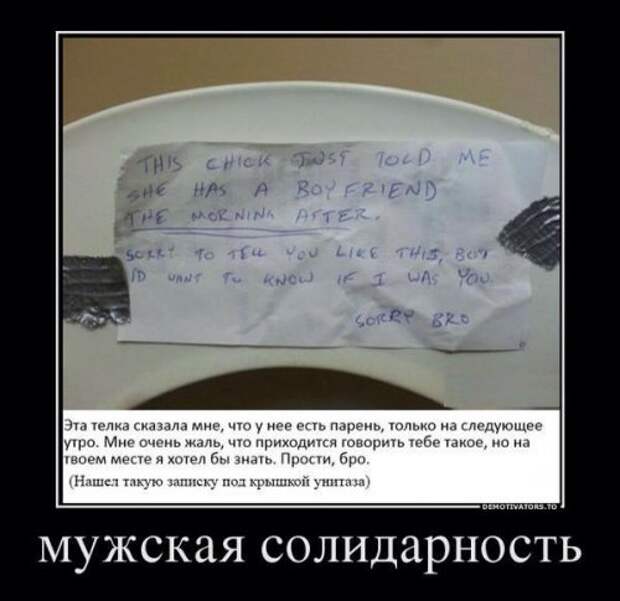 THIS CHICK JUST TOLD ME
SHE HAS A BOYFRIEND
THE MORNING AFTER.
SORRY TO TELL YOU LIKE THIS, BUT
I'D WANT TO KNOW IF I WAS YOU.
SORRY BRO
Эта телка сказала мне, что у нее есть парень, только на следующее
утро. Мне очень жаль, что приходится говорить тебе такое, но на
твоем месте я хотел бы знать. Прости, бро.
(Нашел такую записку под крышкой унитаза)
DEMOTIVATORS.TO
мужская солидарность